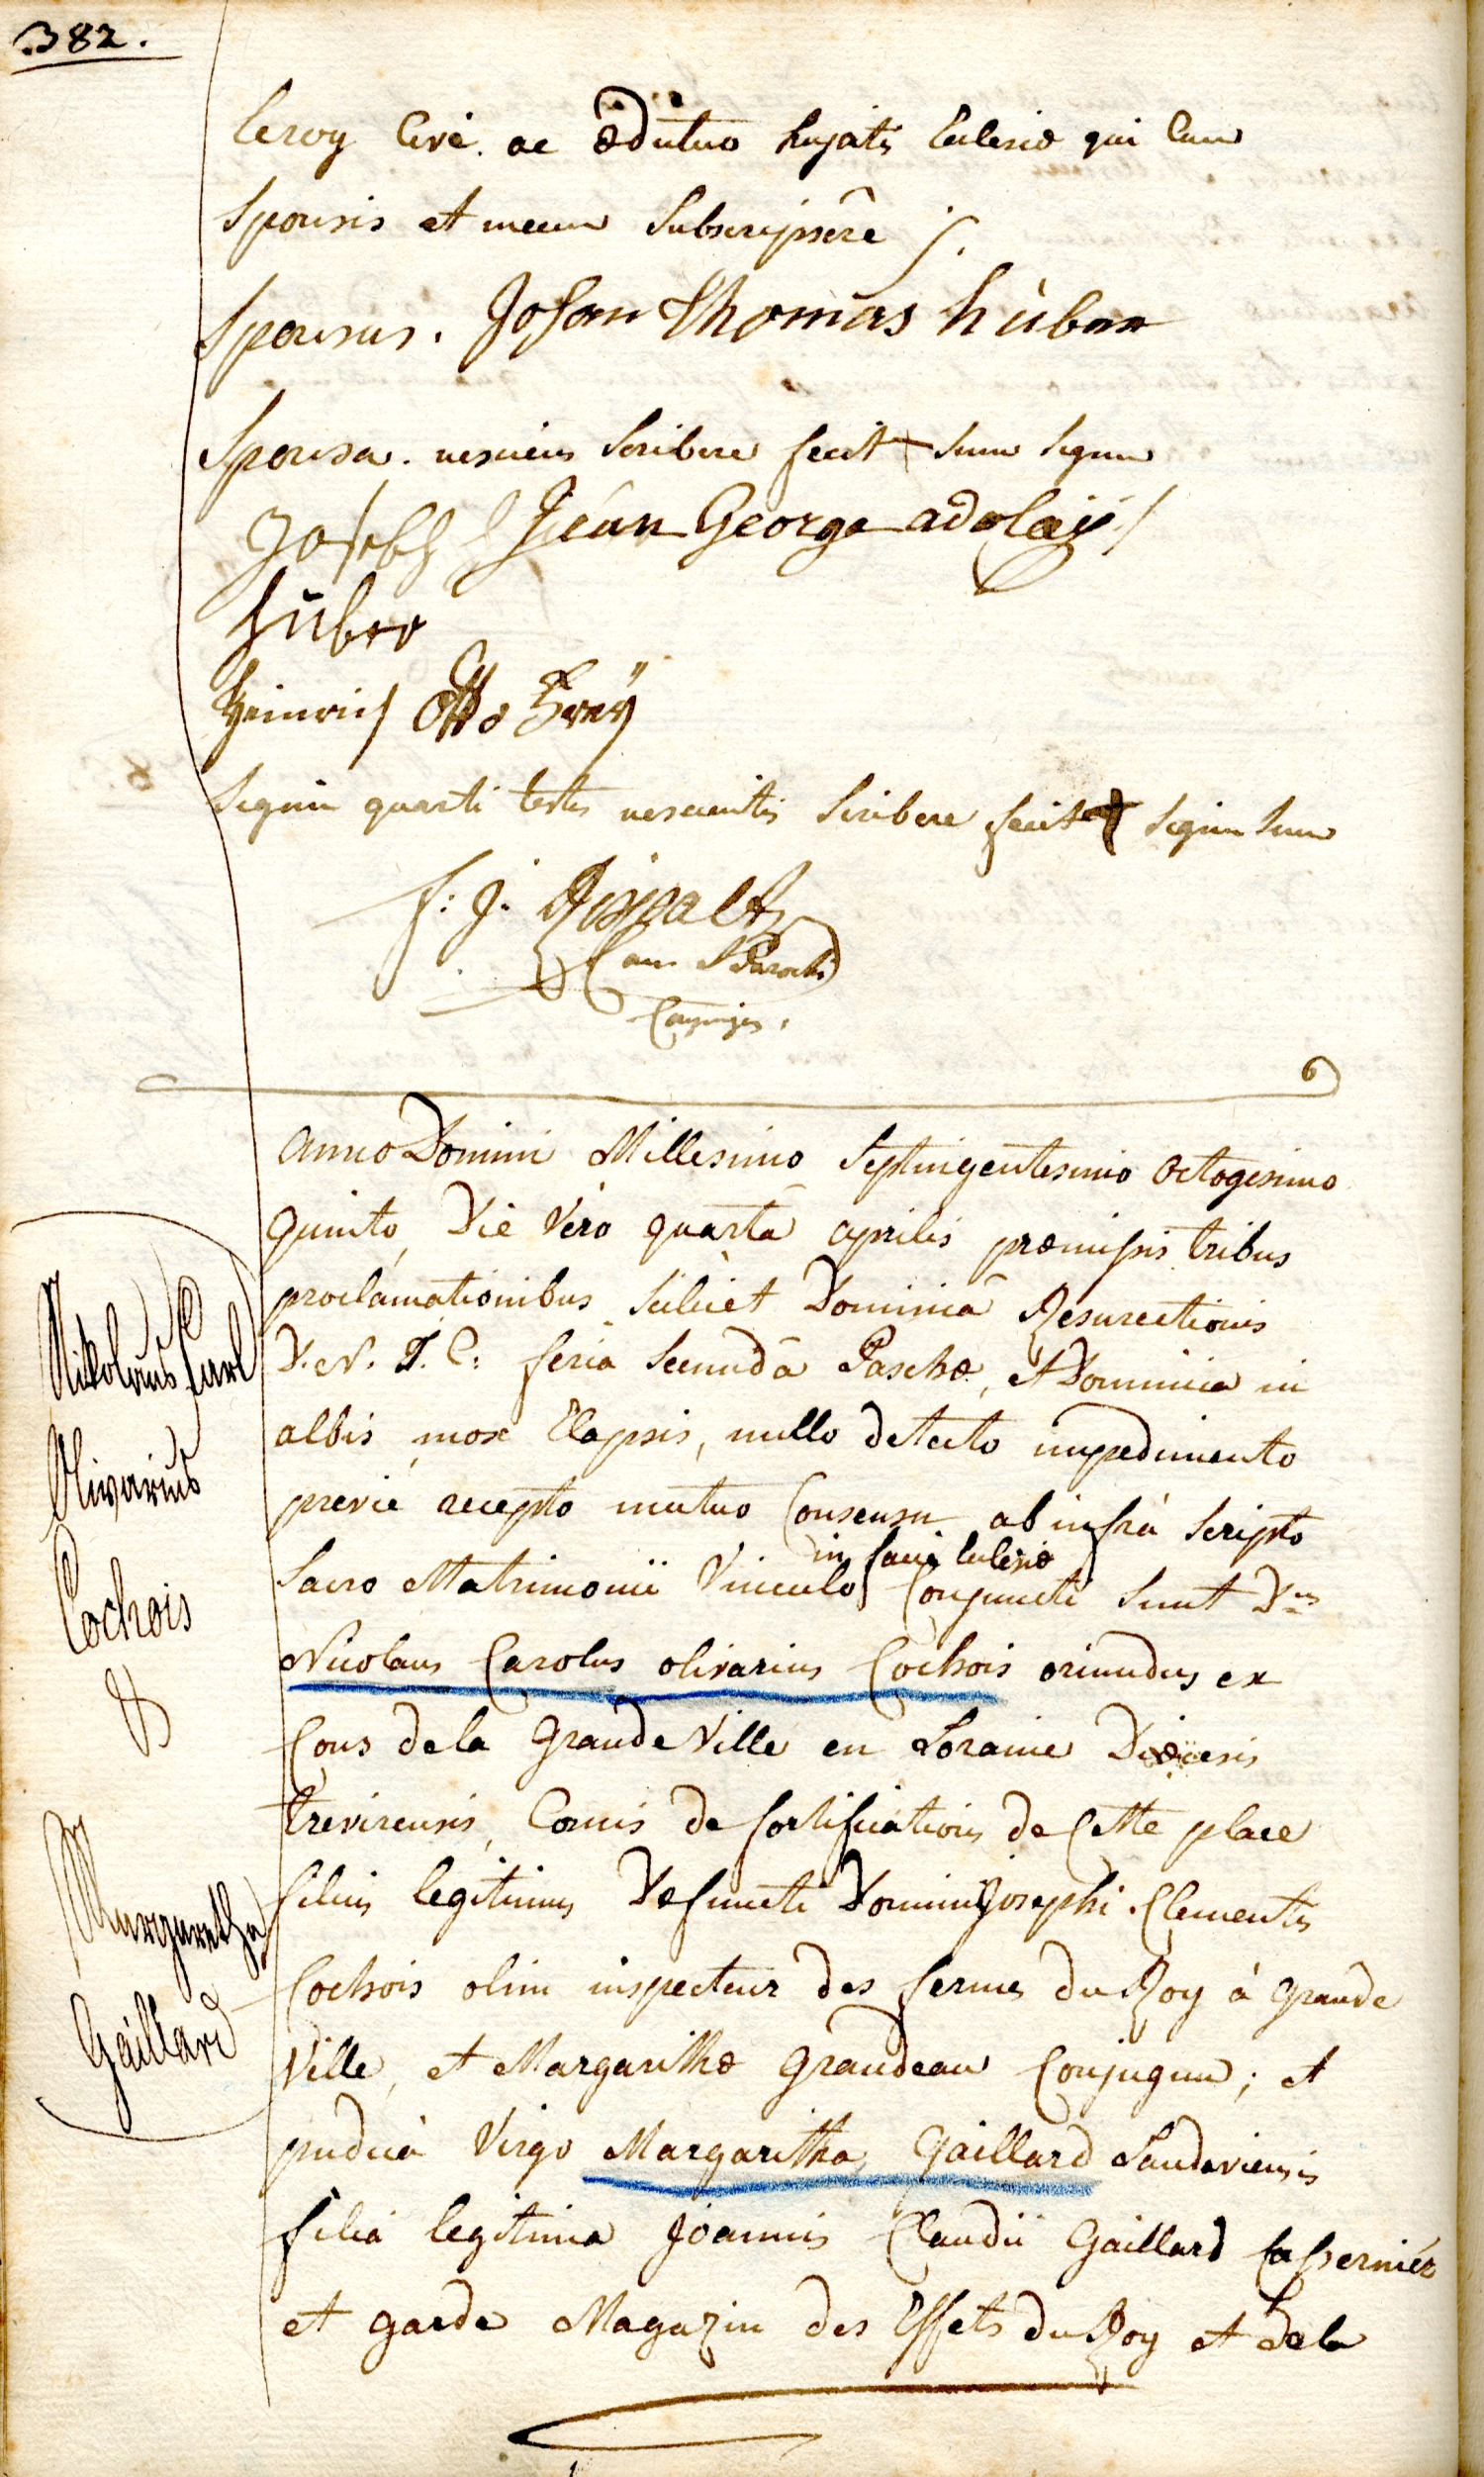 382.
leroy Cive. ac ædituo hujatis Eclesiæ qui Cum
Sponsis et mecum Subscripsêre
Sponsus. Johan Thomas hüber
Sponsa. nesciens Scribere fecit + Suum Signum
Joseph Jean George adolay
hüber
Heinrich Otto Frey
Signum quarti testis nescientis Scribere fecit + Signum Suum
F: J.
Can
Anno Domini Millesimo Septingentesimo octogesimo
Quinto, Die Vero quarta aprilis præmissis tribus
proclamationibus Scilicet Dominicâ Resurectionis
D. N. J. C. feriâ Secundâ Paschæ, et Dominica in
albis mox Elapsis, nullo detecto impedimento
previe recepto mutuo Consensu ab infrà Scripto
in facie Eclesiæ
Sacro Matrimonii Vinculo Conjuncti Sunt Dnus
Nicolaus Carolus olivarius Cochois oriundus ex
Cons de la Grande Ville en Loraine Diœcesis
trevirensis, Comis de fortifications de Cette place
filius legitimus Defuncti Domini Josephi Clementis
Cochois olim inspecteur des fermes du Roy à grande
Ville, et Margarithæ Grandeau Conjugum; et
pudica Virgo Margaritha Gaillard Landaviensis
filia legitima Joannis Claudii Gaillard Cassernier
et garde Magazin des Effets du Roy et de la
Nikolaus Carl
Olivarius
Cochois
&
Margaretha
Gaillard